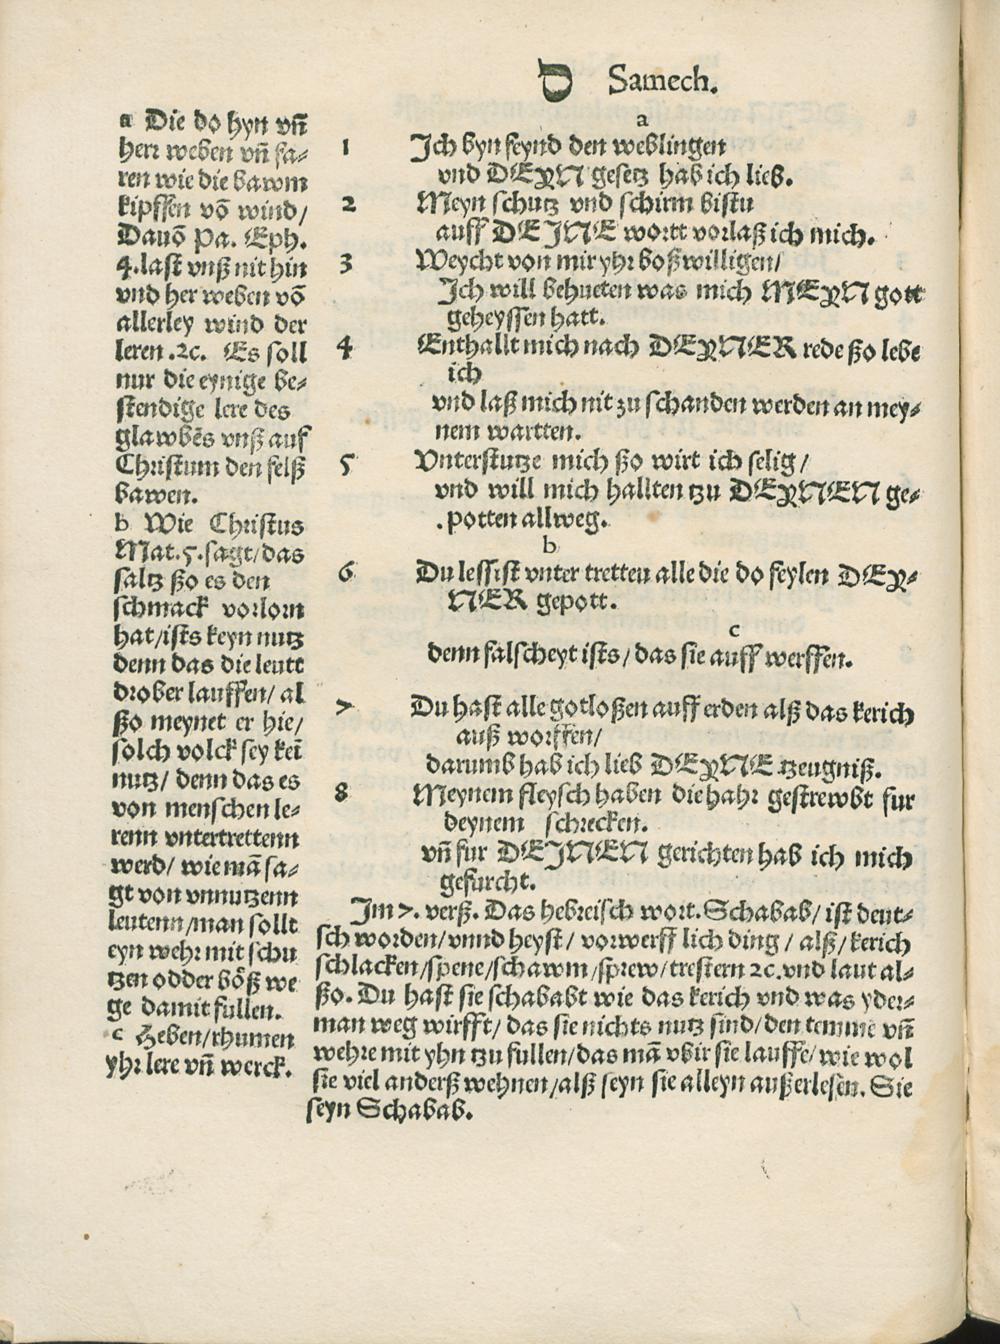 ס Samech.
a Die do hyn vn̄
herr weben vn̄ fa⸗
ren wie die bawm
kipffen vō wind/
Dauō Pa. Eph.
4. last vnß nit hin
vnd her weben vō
allerley wind der
leren .ꝛc. Es soll
nur die eynige be⸗
stendige lere des
glawbēs vnß auf
Christum den felß
bawen.
b Wie Christus
Mat. 5. sagt/das
saltz ßo es den
schmack vorlorn
hat/ists keyn nutz
denn das die leutt
drober lauffen/ al
ßo meynet er hie/
solch volck sey keī
nutz/ denn das es
von menschen le⸗
renn vntertrettenn
werd/ wie mā sa⸗
gt von vnnutzenn
leutenn/man sollt
eyn wehr mit schu
tzen odder bōß we
ge damit fullen.
c Heben/rhumen
yhr lere vn̄ werck.
a
1 Ich byn feynd den weblingen
vnd DEYN gesetz hab ich lieb.
2 Meyn schutz vnd schirm bistu
auff DEINE wortt vorlaß ich mich.
3 Weycht von mir yhr boßwilligen/
Ich will behueten was mich MEYN gott
geheyssen hatt.
4 Enthallt mich nach DEYNER rede ßo lebe
ich
vnd laß mich nit zu schanden werden an mey⸗
nem wartten.
5 Vnterstutze mich ßo wirt ich selig/
vnd will mich hallten tzu DEYNEN ge⸗
potten allweg.
b
6 Du lessist vnter tretten alle die do feylen DEY⸗
NER gepott.
c
denn falscheyt ists/ das sie auff werffen.
7 Du hast alle gotloßen auff erden alß das kerich
auß worffen/
darumb hab ich lieb DEYNE tzeugniß.
8 Meynem fleysch haben die hahr gestrewbt fur
deynem schrecken.
vn̄ fur DEINEN gerichten hab ich mich
gefurcht.
Im 7. verß. Das hebreisch wort. Schabab/ ist deut⸗
sch worden/vnnd heyst/ vorwerff lich ding / alß/ kerich
schlacken/spene/schawm/sprew/trestern ꝛc. vnd laut al⸗
ßo. Du hast sie schababt wie das kerich vnd was yder⸗
man weg wirfft/ das sie nichts nutz sind/den temme vn̄
wehre mit yhn tzu fullen/das mā vbir sie lauffe/ wie wol
sie viel anderß wehnen/alß seyn sie alleyn außerlesen. Sie
seyn Schabab.